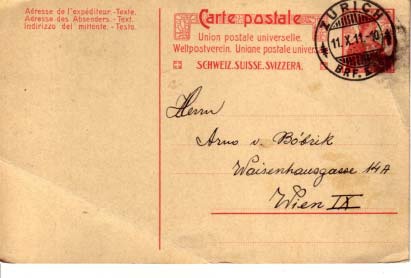 Adresse de l'expéditeur.-Texte.
Adresse des Absenders.-Text.
Indirizzo del mittente.-Testo.
Carte postale
Union postale universelle.
Weltpostverein. Unione postale univers
SCHWEIZ.SUISSE.SVIZZERA.
ZÜRICH
11.X.11.-10
BRF.
Herrn
Arno v. Bóbrik
Waisenhausgasse 14A
Wien IX